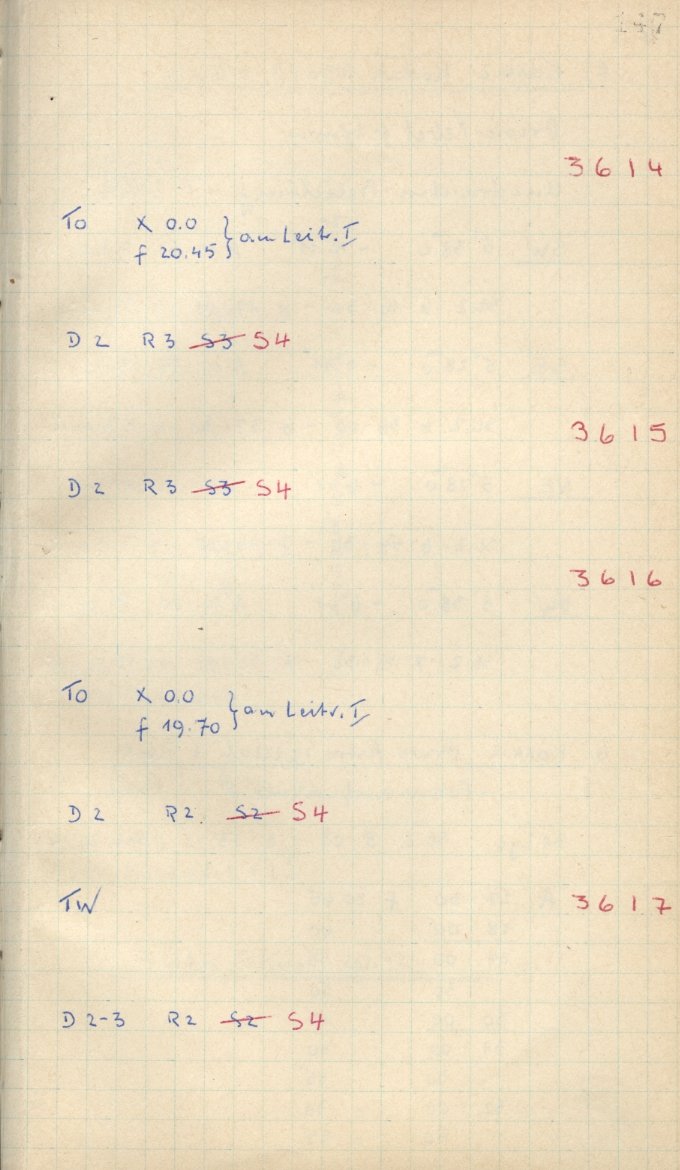 3614
To X 0.0 } am Leitr. I
f 20.45
D 2 R 3 S3 S4
3615
D 2 R 3 S3 S4
3616
To X 0.0 } am Leitr. I
f 19.70
D 2 R 2. S2 S4
TW 3617
D 2-3 R 2 S2 S4